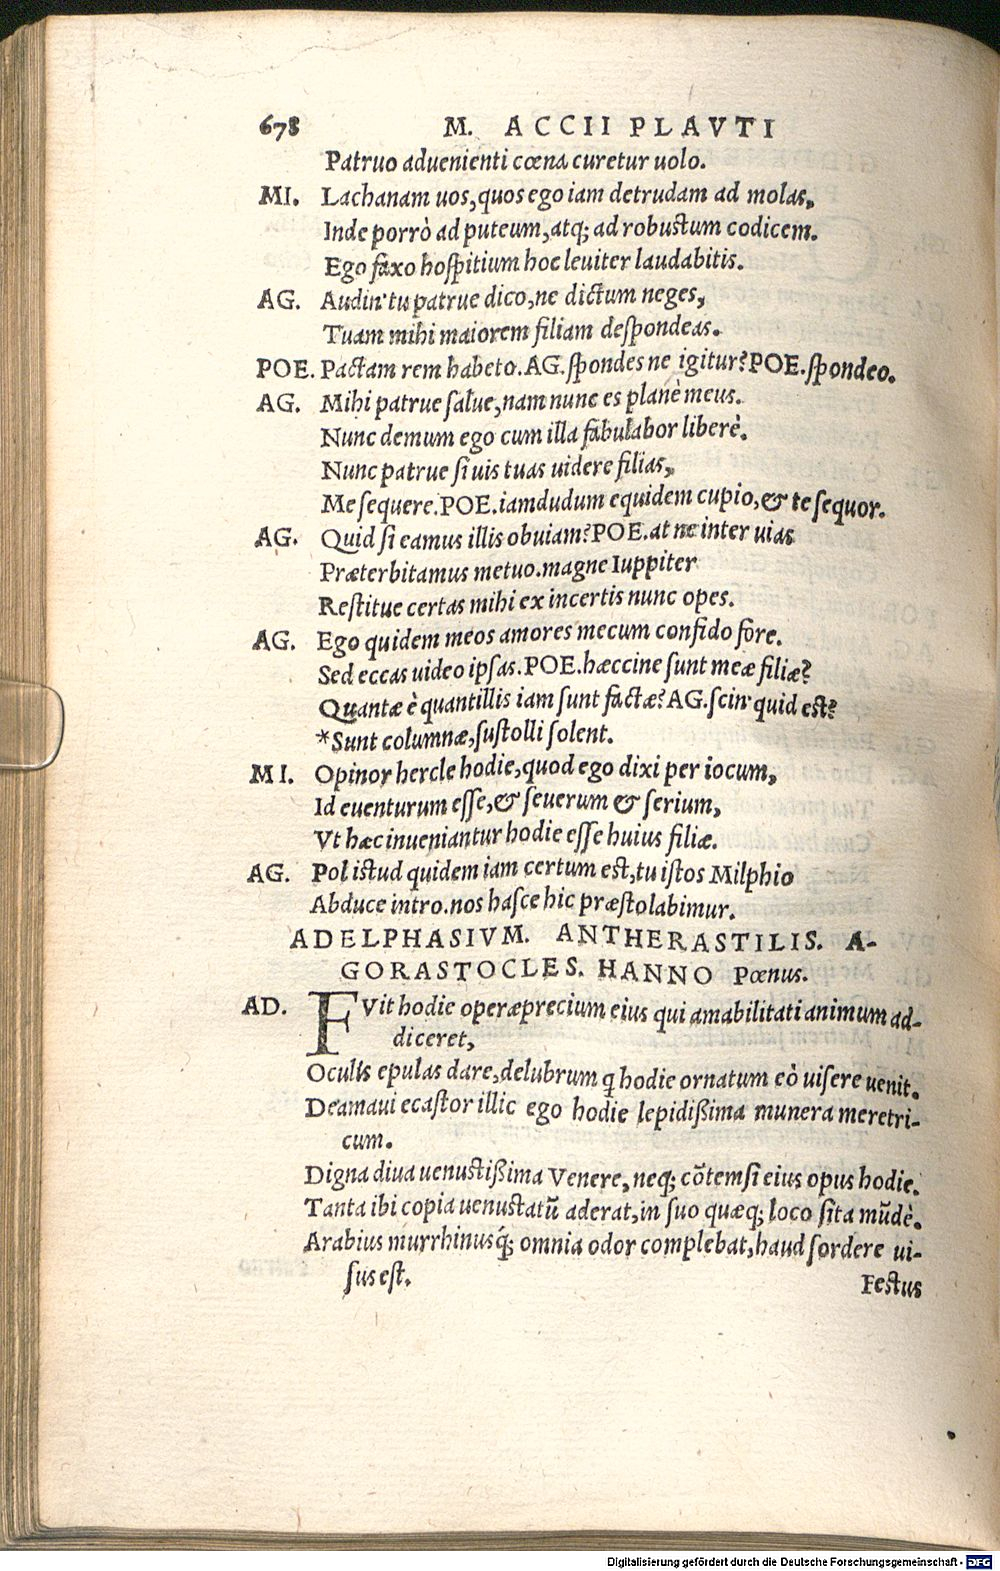 678 M. ACCII PLAVTI
Patruo aduenienti cœna curetur uolo.
MI. Lachanam uos, quos ego iam detrudam ad molas,
Inde porrò ad puteum, atq; ad robustum codicem.
Ego faxo hospitium hoc leuiter laudabitis.
AG. Audin' tu patrue dico, ne dictum neges,
Tuam mihi maiorem filiam despondeas.
POE. Pactam rem habeto. AG. spondes ne igitur? POE. spondeo.
AG. Mihi patrue salue, nam nunc es planè meus.
Nunc demum ego cum illa fabulabor liberè.
Nunc patrue si uis tuas uidere filias,
Me sequere. POE. iamdudum equidem cupio, & te sequor.
AG. Quid si eamus illis obuiam? POE. at ne inter uias
Præterbitamus metuo. magne Iuppiter
Restitue certas mihi ex incertis nunc opes.
AG. Ego quidem meos amores mecum confido fore.
Sed eccas uideo ipsas. POE. hæccine sunt meæ filiæ?
Quantæ è quantillis iam sunt factæ? AG. scin' quid est?
*Sunt columnæ, sustolli solent.
MI. Opinor hercle hodie, quod ego dixi per iocum,
Id euenturum esse, & seuerum & serium,
Vt hæc inueniantur hodie esse huius filiæ.
AG. Pol istud quidem iam certum est, tu istos Milphio
Abduce intro. nos hasce hic præstolabimur.
ADELPHASIVM. ANTHERASTILIS. A-
GORASTOCLES. HANNO Pœnus.
AD. FVit hodie operæprecium eius qui amabilitati animum ad-
diceret,
Oculis epulas dare, delubrum q̃ hodie ornatum eò uisere uenit.
Deamaui ecastor illic ego hodie lepidißima munera meretri-
cum.
Digna diua uenustißima Venere, neq; cõtemsi eius opus hodie.
Tanta ibi copia uenustatũ aderat, in suo quæq; loco sita mũdè.
Arabius murrhinusq́; omnia odor complebat, haud sordere ui-
sus est. Festus
Digitalisierung gefördert durch die Deutsche Forschungsgemeinschaft - DFG